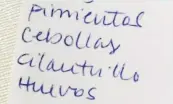 Pimientos
Cebollas
Cilantrillo
Huevos